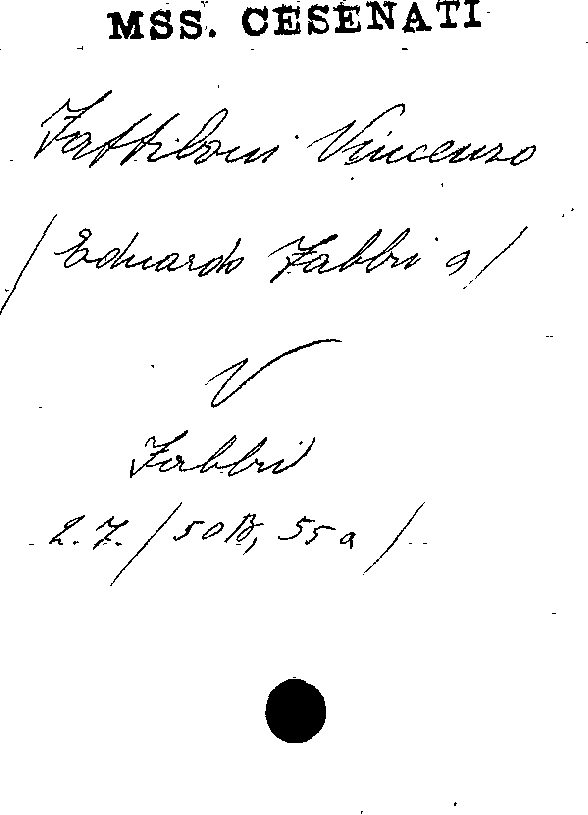 MSS. CESENATI
Fattiboni Vincenzo
/ Eduardo Fabbri a /
V
Fabbri
2.7. / 50B, 55a /